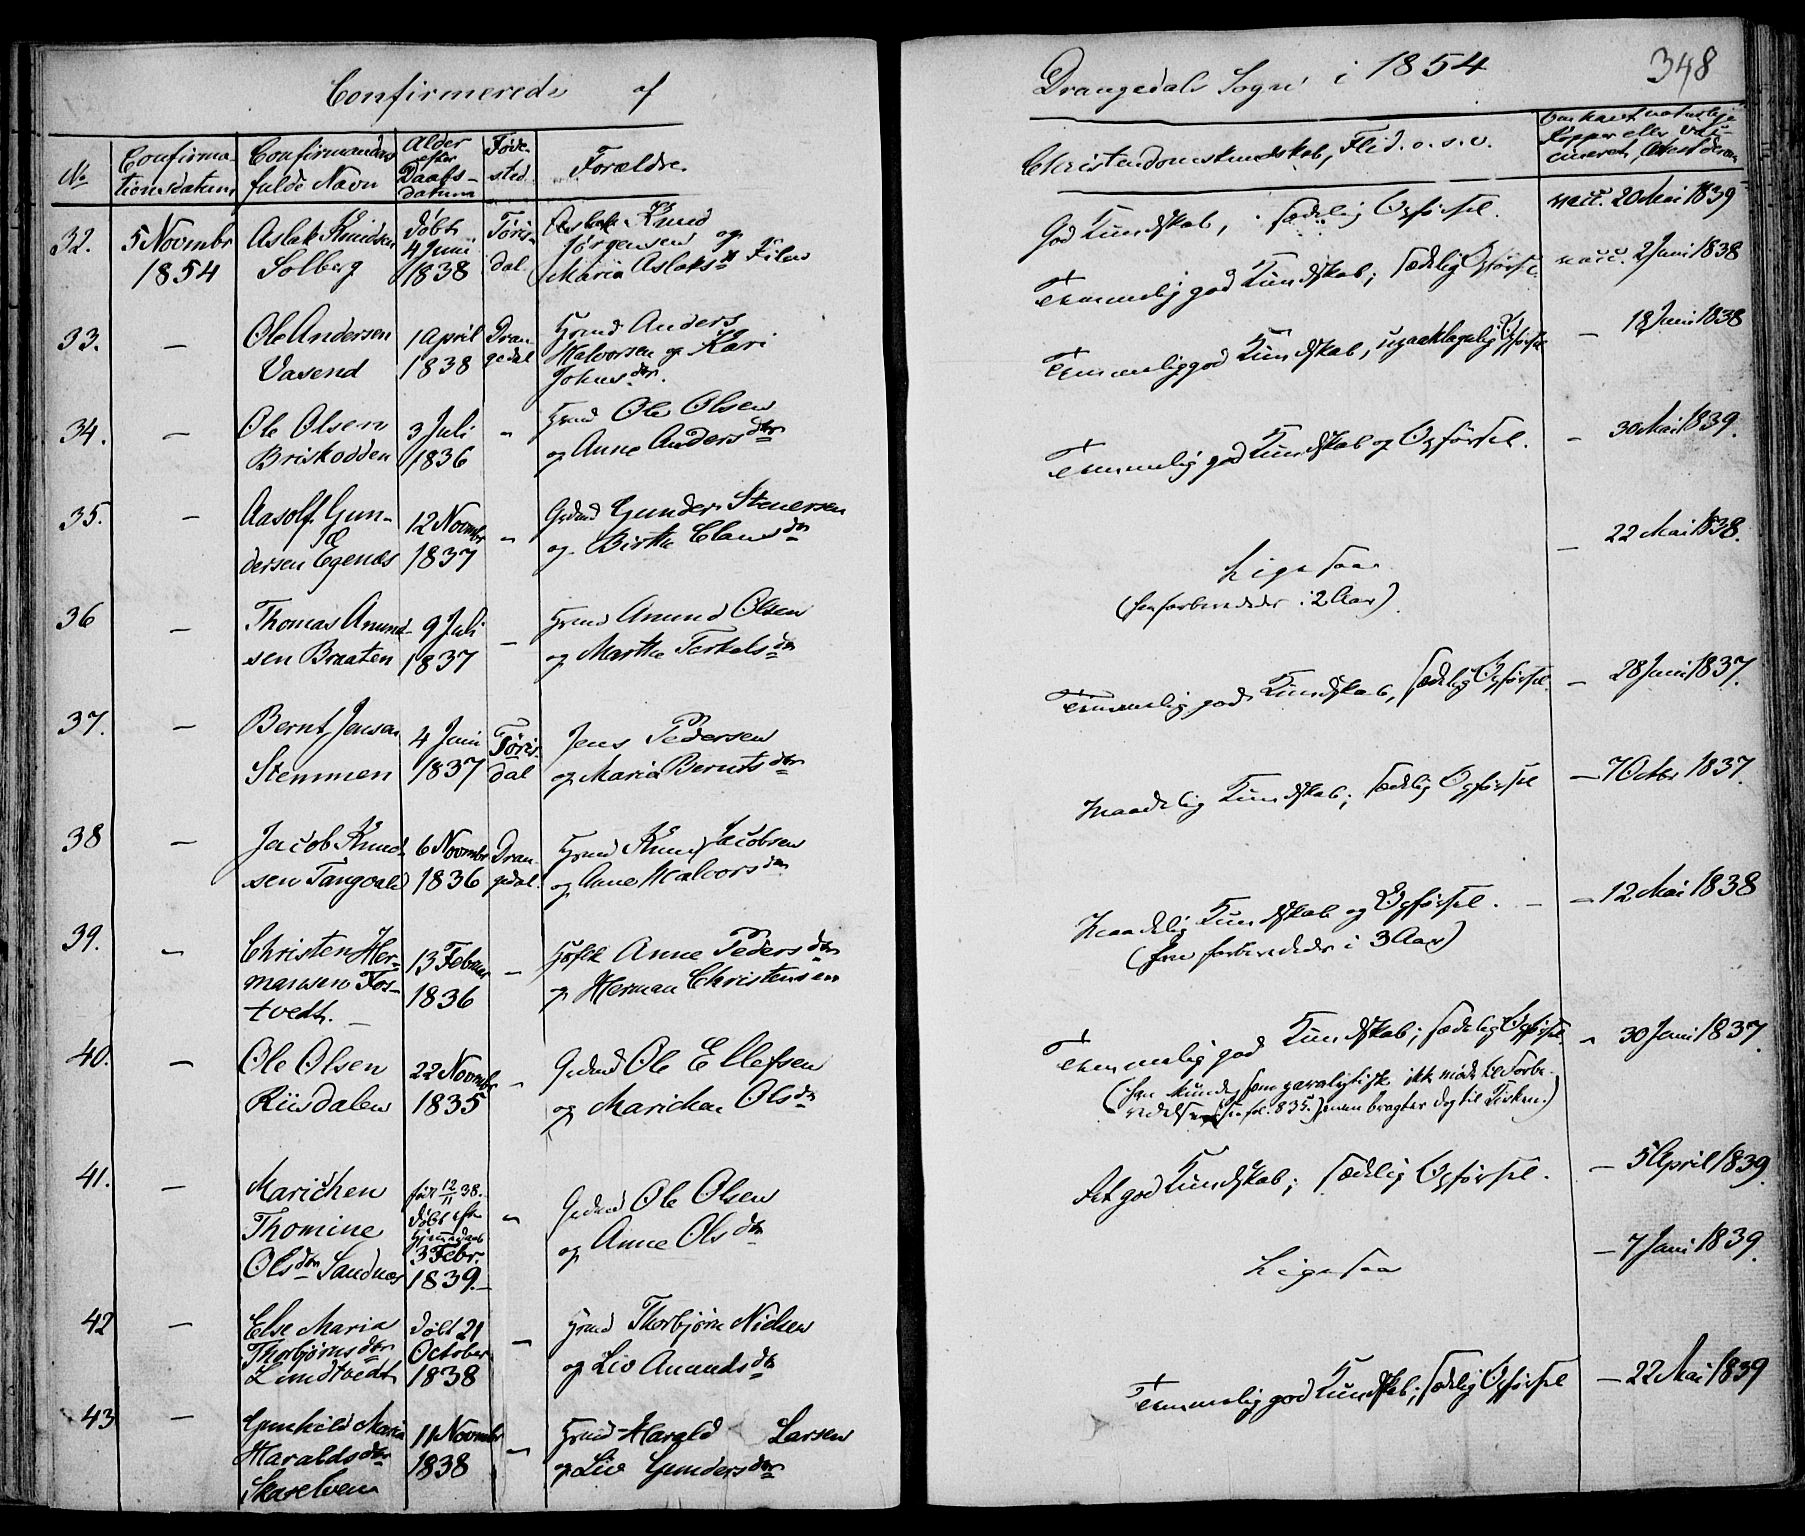 Confirmerede af
Drangedals Sogn i 1854
348
No
Confirma-
tionsdatum
Confirmandens
fulde Navn
Alder
efter
Daabs-
datum
Føde-
sted.
Forældre.
Christendomskundskab, Flid. o. s. v.
32.
5 Novmbr
1854
Aslak Knudsen
Solberg
døbt
4 Juni
1838
Tøris-
dal.
Knud
Jørgensen og
Maria Aslaksdr
God Kundskab, sædelig Opførsel.
vacc. 20 Mai 1839
33.
—
Ole Andersen
Vasend
1 April
1838
Dran-
gedal
Grmd Anders
Halvorsen og Kari
Johnsdtr.
Temmelig god Kundskab; sædelig Opførsel
vacc. 2 Juni 1838
34.
—
Ole Olsen
Briskodden
3 Juli
1836
"
Grmd Ole Olsen
og Anne Andersdtr
Temmelig god Kundskab, upaaklagelig Opførsel
— 18 Juni 1838
35.
—
Aasolf Gun-
dersen Egenæs
12 Novmbr
1837
"
Gdmd Gunder Stenersen
og Birthe Clausdtr
Temmelig god Kundskab og Opførsel.
— 30 Mai 1839.
36
—
Thomas Amund-
sen Braaten
9 Juli
1837
—
Grmd Amund Olsen
og Marthe Terkelsdtr
Ligesaa
(forberedes i 2 Aar).
— 22 Mai 1838.
37.
—
Bernt Jensen
Stemmen
4 Juni
1837
Tøris-
dal
Jens Pedersen
og Maria Berntsdtr
Temmelig god Kundskab, sædelig Opførsel.
— 28 Juni 1837.
38
—
Jacob Knud-
sen Tangvald
6 Novmbr
1836
Dran-
gedal.
Grmd Knud Jacobsen
og Anne Halvorsdtr
Maadelig Kundskab; sædelig Opførsel
— 7 Octbr 1837.
39.
—
Christen Her-
mansen Fos-
tvedt.
13 Februar
1836
—
Anne Pedersdtr
og Herman Christensen
Maadelig Kundskab og Opførsel.
(forberedes i 3 Aar)
— 12 Mai 1838
40.
—
Ole Olsen
Riisdalen
22 Novmbr
1835
"
Gdmd Ole Ellefsen
og Marichen Olsdtr
Temmelig god Kundskab; sædelig Opførsel.
som paralytisk ikke møde til Forbe-
redelse men bragtes dog til Kirken.)
— 30 Juni 1837.
41.
—
Marichen
Thomine
Olsdtr Sandnæs
født 12/11 38.
døbt efter
Hjemmedaab
3 Febr.
1839.
"
Gdmd Ole Olsen
og Anne Olsdtr
Ret god Kundskab; sædelig Opførsel.
— 5 April 1839.
42
—
Else Maria
Thorbjørnsdtr
Lindtvedt
døbt 21
October
1838
—
Grmd Thorbjørn Nielsen
og Liv Amundsdtr
Ligesaa
— 7 Juni 1839.
43
—
Gunhild Maria
Haraldsdtr
11 Novmbr
1838
"
Grmd Harald Larsen
og Liv Gundersdtr
Temmelig god Kundskab; sædelig Opførsel
— 22 Mai 1839